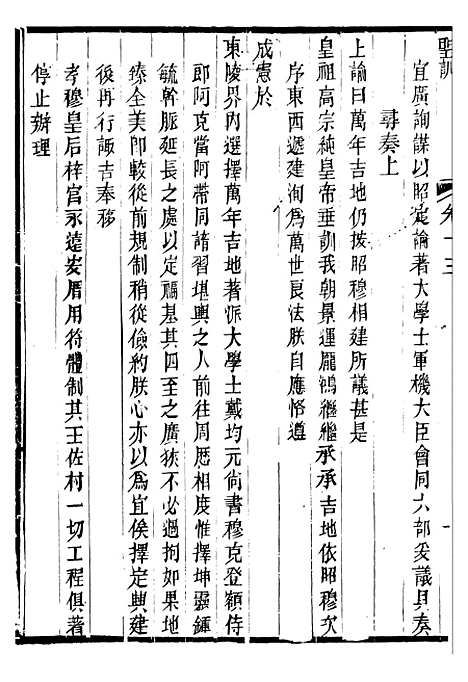 聖訓
卷十三
宜廣詢謀以昭定論著大學士軍機大臣會同六部妥議具奏
尋奏上
上諭曰萬年吉地仍按昭穆相建所議甚是
皇祖高宗純皇帝垂訓我朝景運龐鴻繼繼承承吉地依昭穆次
序東西遞建洵為萬世良法朕自應恪遵
成憲於
東陵界內選擇萬年吉地著派大學士戴均元尚書穆克登額侍
郎阿克當阿帶同諳習堪輿之人前往周歷相度惟擇坤靈鍾
毓幹脈延長之處以定福基其四至之廣狹不必過拘如果地
臻全美卽較從前規制稍從儉約朕心亦以為宜俟擇定興建
後再行諏吉奉移
孝穆皇后梓宮永遠安厝用符體制其王佐村一切工程俱著
停止辦理